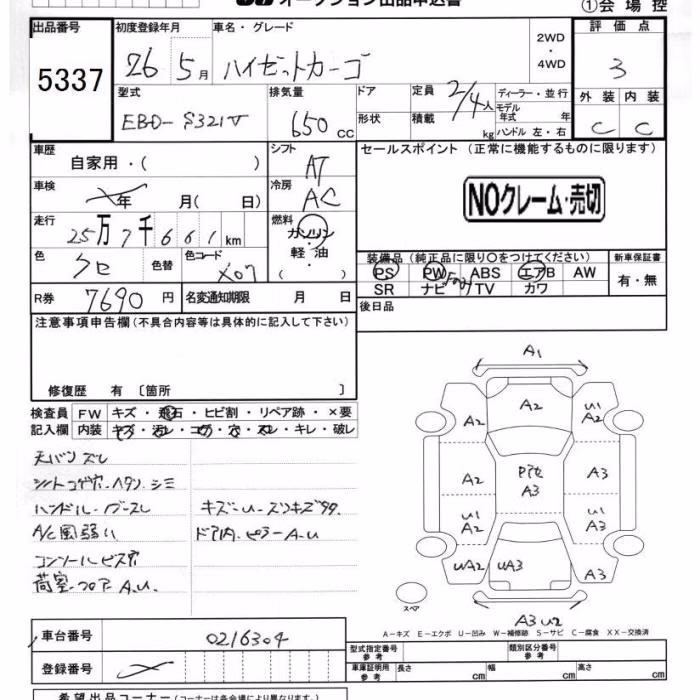 オークション出品申込書
①会場控
出品番号 初度登録年月 車名・グレード 2WD・4WD 評価点
5337 26 5月 ハイゼットカーゴ 3
型式 排気量 ドア 定員 2/4人 ディーラー・並行 外装 内装
EBD-S321V 650cc 形状 積載 kg モデル年式 年 ハンドル 左・右 C C
車歴 シフト セールスポイント (正常に機能するものに限ります)
自家用・( ) AT
車検 年 月( 日) 冷房 AC NOクレーム・売切
走行 25万7千661km 燃料 ガソリン・軽油・( )
色 クロ 色替 色コード X07
装備品 (純正品に限り〇をつけてください) 新車保証書
PS PW ABS エアB AW 有・無
SR ナビ TV カワ
R券 7690円 名変通知期限 月 日 後日品
注意事項申告欄(不具合内容等は具体的に記入して下さい)
修復歴 有 〔箇所 〕
検査員記入欄 FW キズ・飛石・ヒビ割・リペア跡・×要
内装 キズ・汚レ・コゲ・穴・スレ・キレ・破レ
天バリ スレ
シートコゲ穴.ヘタリ.シミ
ハンドル.ブースレ
キズ-U-スリキズ多々.
A/C風弱い
ドア内.ピラーA-U
コンソールビス穴
荷室.フロアA.U.
A1
A2
U1 A2
A2
A2
Pアセ A3
A3
U1 A2
U1 A2
UA2
UA3
A3
スペア
A3 U2
A-キズ E-エクボ U-凹み W-補修跡 S-サビ C-腐食 XX-交換済
車台番号 0216304
型式指定番号 参考 類別区分番号 参考
登録番号
車庫証明用 参考 長さ cm 幅 cm 高さ cm
希望出品コーナー(コーナーは各会場により異なります。)